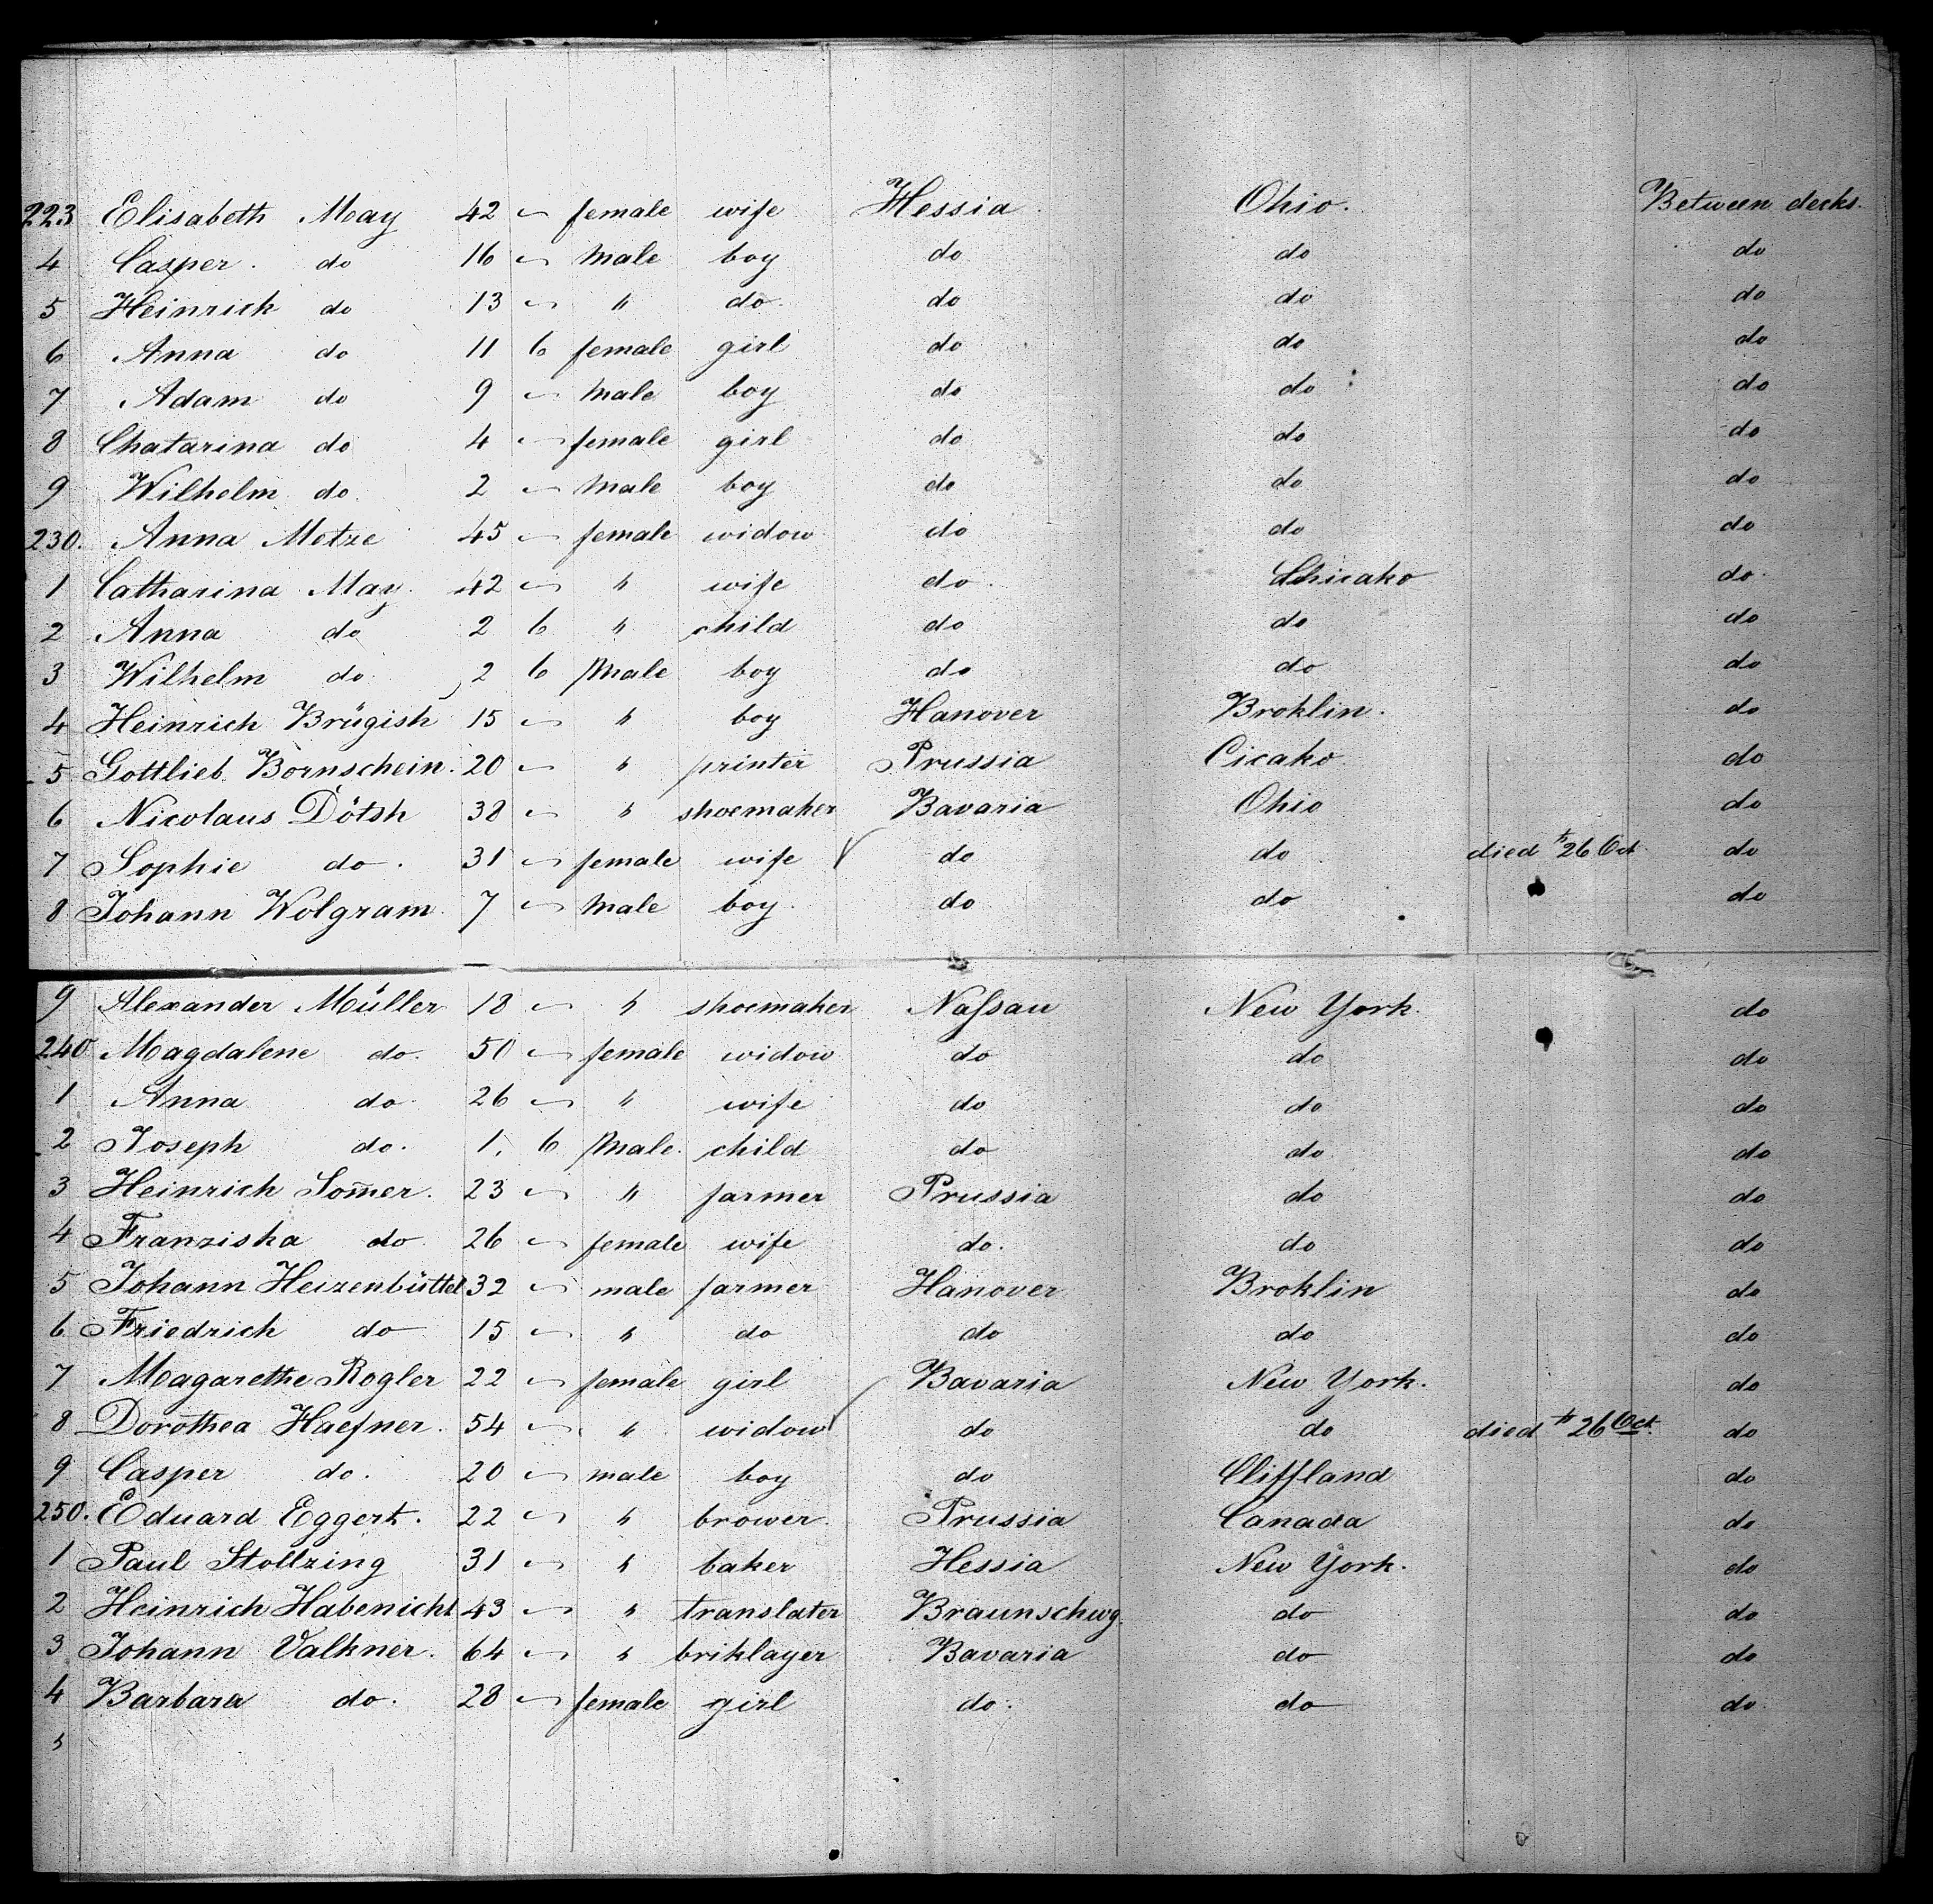 223 Elisabeth May 42 - female wife Hessia. Ohio. Between decks.
4 Casper. do 16 - male boy do do do
5 Heinrich do 13 - " do. do do do
6 Anna do 11 6 female girl do do do
7 Adam do 9 - male boy do do do
8 Chatarina do 4 - female girl do do do
9 Wilhelm do. 2 - male boy do do do
230. Anna Metze 45 - female widow do do do
1 Catharina May. 42 - " wife do. Chicako do.
2 Anna do 2 6 " child do do do
3 Wilhelm do 2 6 Male boy do do do
4 Heinrich Brügish 15 - " boy Hanover Broklin. do
5 Gottlieb Bornschein. 20 - " printer Prussia Cicako. do
6 Nicolaus Dötsh 38 - " shoemaker Bavaria Ohio do
7 Sophie do. 31 - female wife do do died 26 Oct. do
8 Johann Wolgram. 7 - male boy. do do do
9 Alexander Müller 18 - " shoemaker Naſsau New York. do
240 Magdalene do. 50 - female widow do do do
1 Anna do 26 - " wife do do do
2 Joseph do. 1. 6 Male. child do do do
3 Heinrich Som̄er. 23 - " farmer Prussia do do
4 Franziska do 26 - female wife do. do do
5 Johann Heizenbüttel 32 - male farmer Hanover Broklin do
6 Friedrich do 15 - " do do do do
7 Magarethe Rogler 22 - female girl Bavaria New York. do
8 Dorothea Haefner. 54 - " widow do do died 26 Oct. do
9 Casper do. 20 - male boy do Cliffland do
250. Eduard Eggert. 22 - " brower. Prussia Canada do
1 Paul Stoltzing 31 - " baker Hessia New York. do
2 Heinrich Habenicht 43 - " translater Braunschwg. do do
3 Johann Valkner. 64 - " briklayer Bavaria do do
4 Barbara do. 28 - female girl do. do do
5